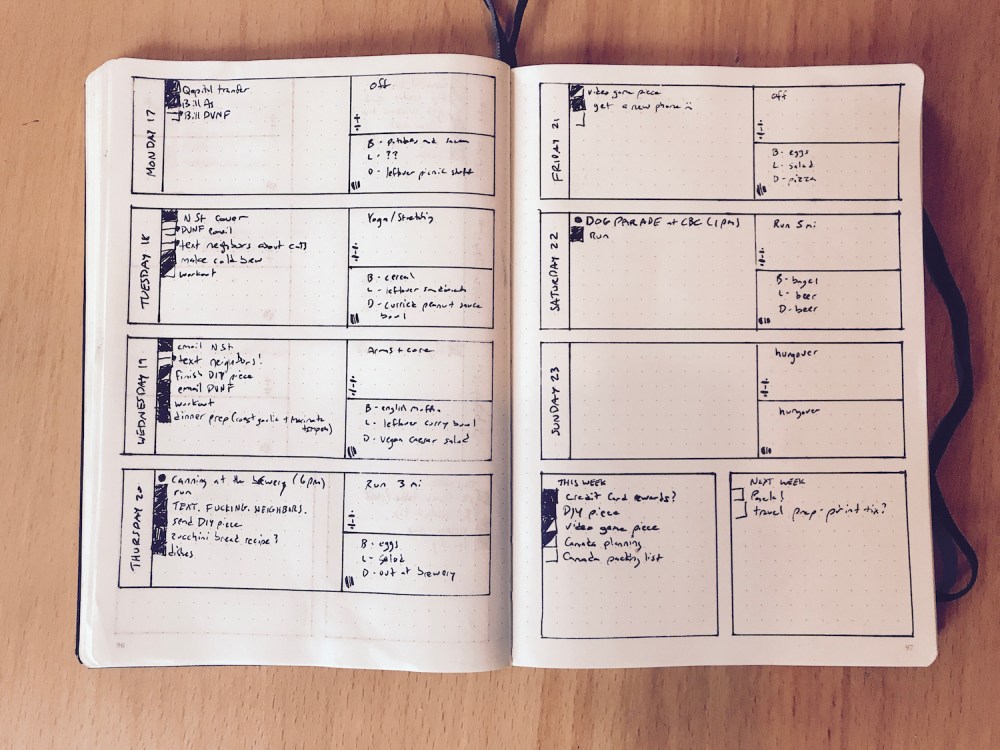 MONDAY 17
Qapital transfer
Bill As
Bill DVNF
Off
B - and
L - ??
D - leftover picnic stuff
TUESDAY 18
NSt cover
DVNF email
text neighbors about cats
make cold brew
workout
Yoga/Stretching
B - cereal
L - leftover sandwich
D - peanut sauce
bowl
WEDNESDAY 19
email NSt
text neighbors!
finish DIY piece
email DVNF
workout
dinner prep (roast garlic + marinate
tempeh)
Arms + core
B - english muffin
L - leftover curry bowl
D - vegan caesar salad
THURSDAY 20
canning at the brewery (6pm)
run
TEXT. FUCKING. NEIGHBORS.
send DIY piece
zucchini bread recipe?
dishes
Run 3 mi
B - eggs
L - salad
D - out at brewery
96
FRIDAY 21
video game piece
get a new phone :(
off
B - eggs
L - salad
D - pizza
SATURDAY 22
DOG PARADE at CBC (1pm)
Run
Run 5 mi
B - bagel
L - beer
D - beer
SUNDAY 23
hungover
hungover
THIS WEEK
Credit Card rewards?
DIY piece
Video game piece
Canada planning
Canada packing list
NEXT WEEK
Pack!
travel prep - print tix?
97